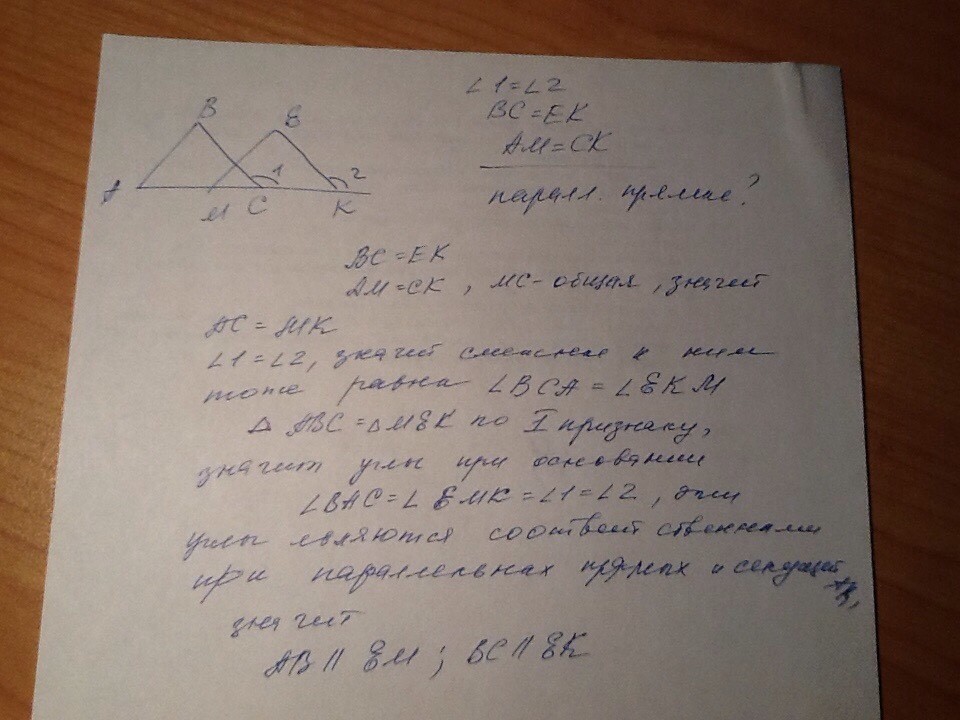 ∠1=∠2
BC=EK
AM=CK
паралл. прямые?
B
E
A
1
2
M C K
BC=EK
AM=CK, MC-общая, значит
AC=MK
∠1=∠2, значит смежные к ним
тоже равны ∠BCA=∠EKM
△ABC=△MEK по I признаку,
значит углы при основании
∠BAC=∠EMK=∠1=∠2, эти
углы являются соответственными
при параллельных прямых и секущей AK,
значит
AB||EM; BC||EK